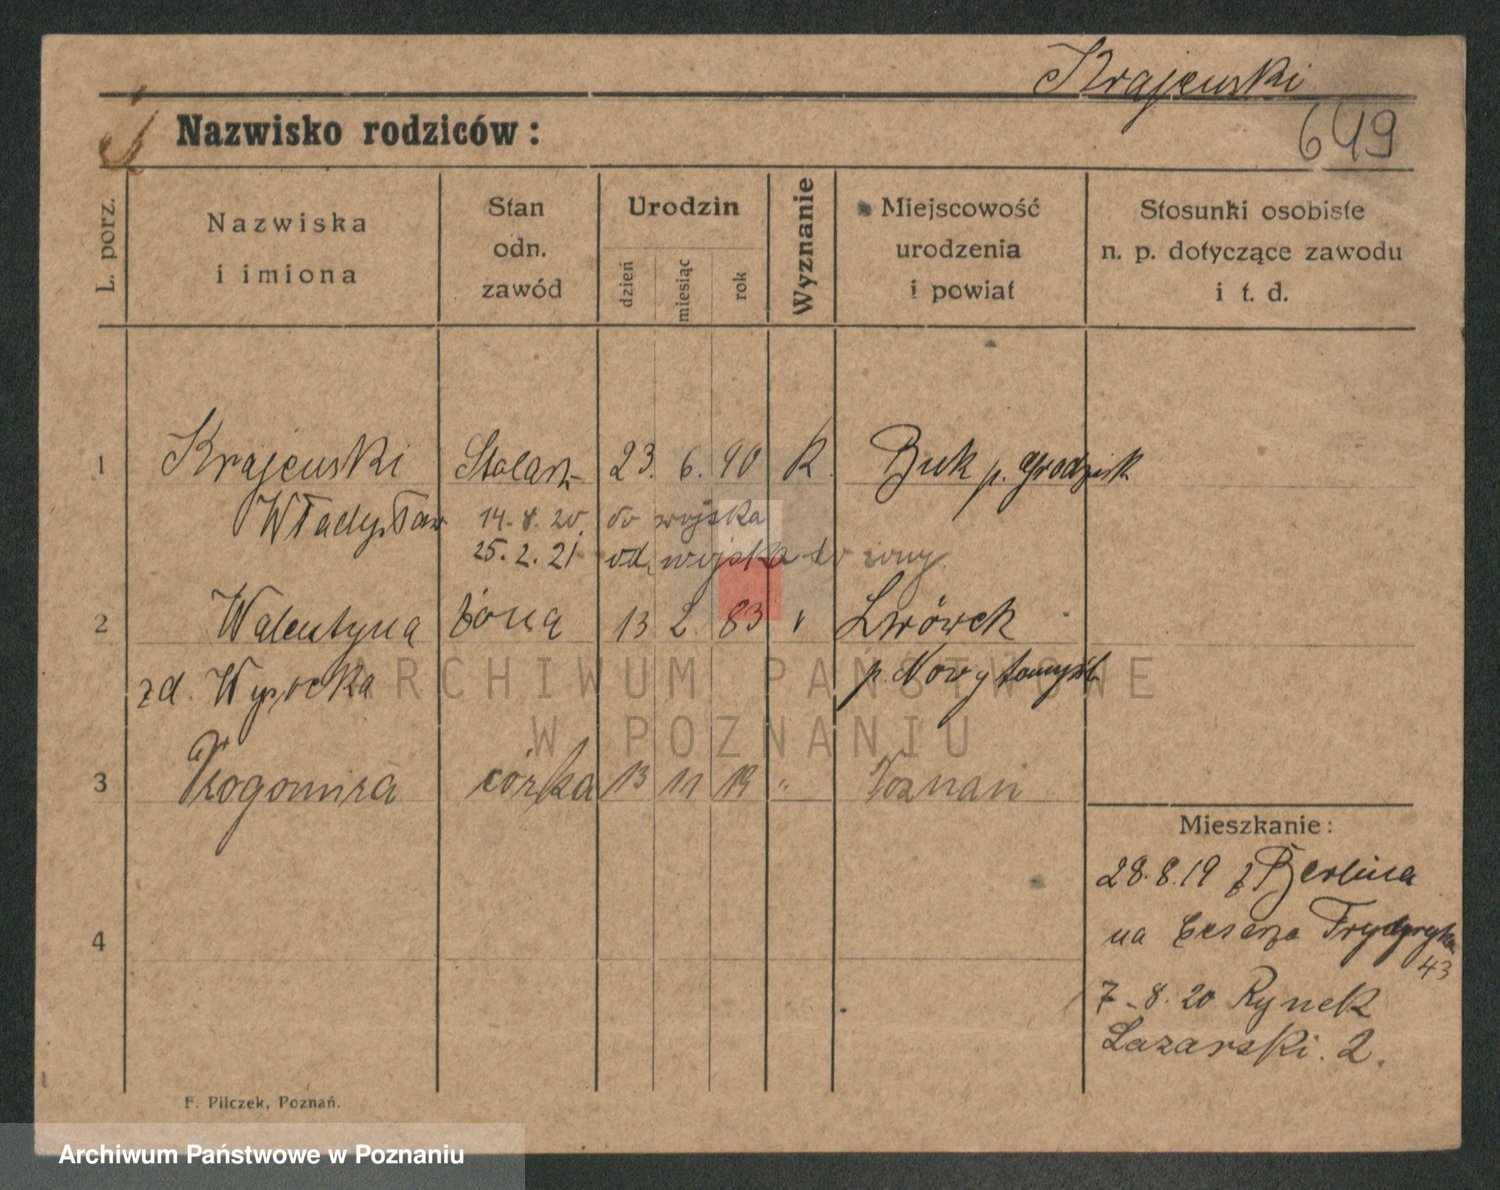 Krajewski
649
Nazwisko rodziców:
L. porz.
Nazwiska
i imiona
Stan
odn.
zawód
Urodzin
dzień
miesiąc
rok
Wyznanie
Miejscowość
urodzenia
i powiat
Stosunki osobiste
n. p. dotyczące zawodu
i t. d.
1 Krajewski Stolarz 23. 6. 90 K. Buk p. Grodzisk
Władysław 14.8.20 do wojska
25.2.21 od wojska do żony
2 Walentyna żona 13 2. 83 " Lwówek
zd. Wysocka p. Nowy Tomyśl
3 córka 13 11 19 " Poznań
4
Mieszkanie:
28.8.19 z Berlina
na Cesarza Fryderyka
43
7-8.20 Rynek
Łazarski. 2.
F. Pilczek, Poznań.
ARCHIWUM PAŃSTWOWE
W POZNANIU
Archiwum Państwowe w Poznaniu